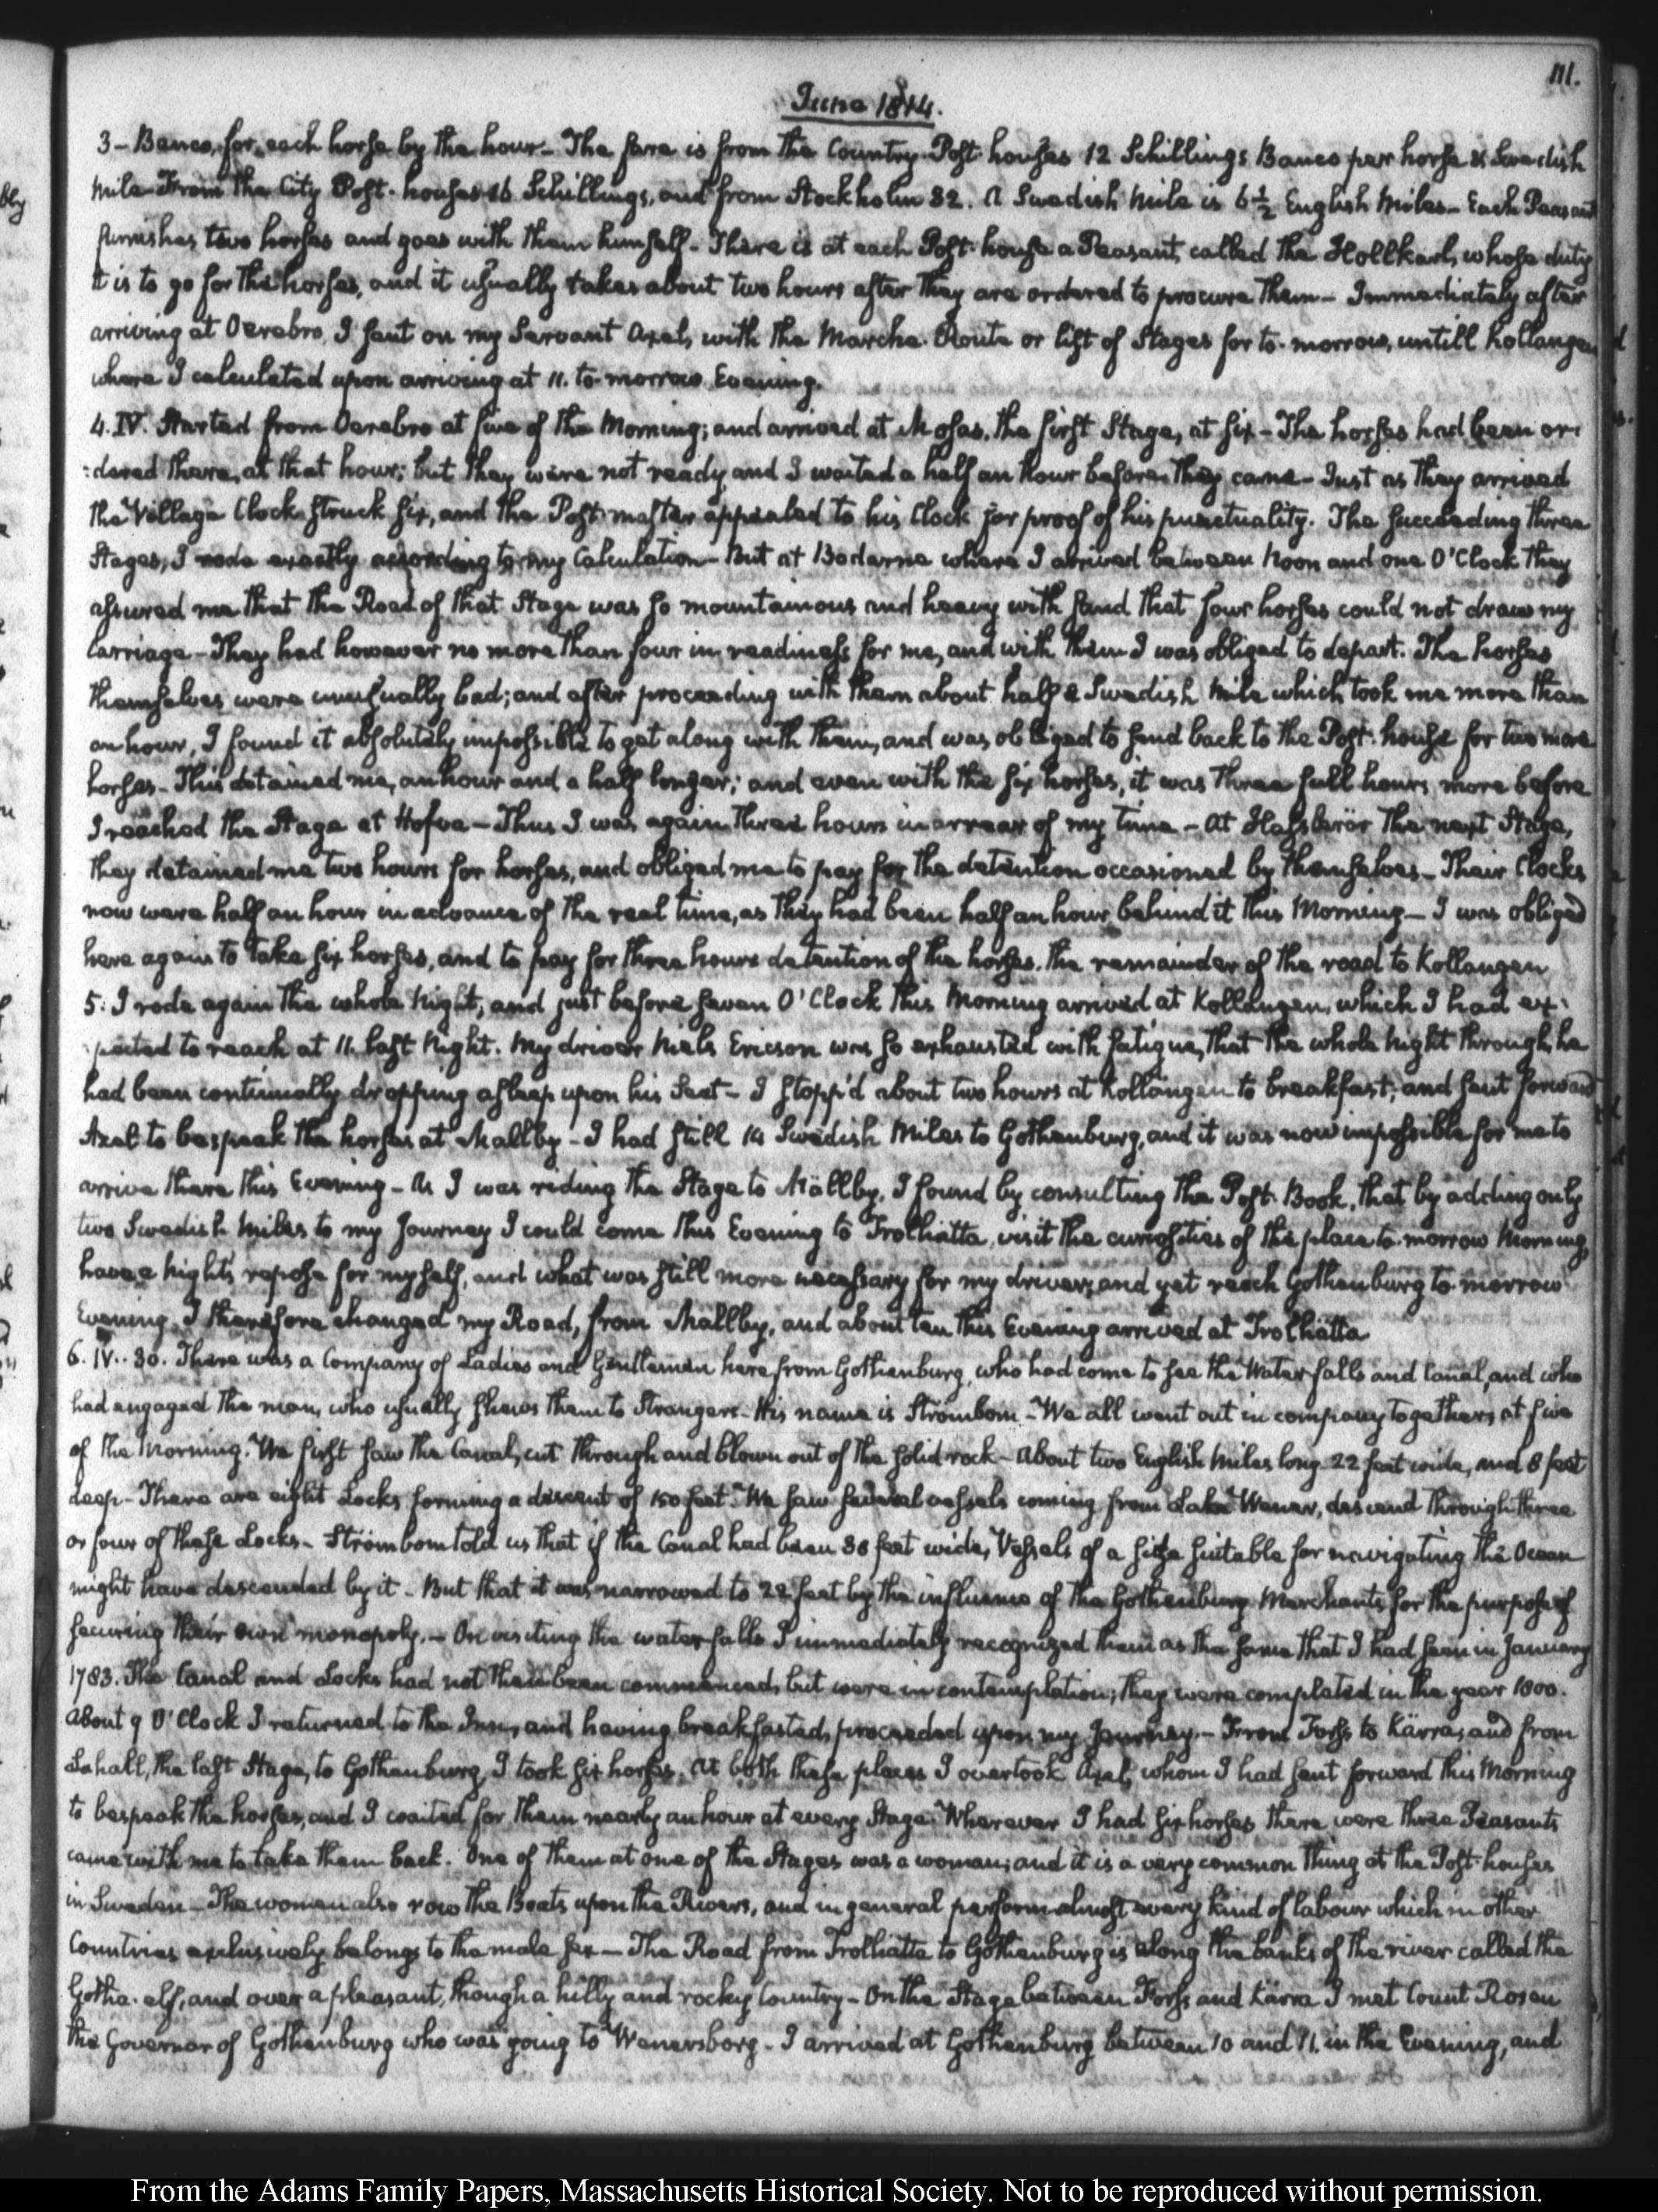 111.
June 1814.
3 – Banco, for each horse by the hour – The fare is from the Country Post-houses 12 Schillings Banco per horse & Swedish
mile – From the City Post-houses 16 Schillings, and from Stockholm 32. A Swedish mile is 6½ English Miles – Each Peasant
furnishes two horses and goes with them himself – There is at each Post-house a Peasant, called the Hollkarl, whose duty
it is to go for the horses, and it usually takes about two hours after they are ordered to procure them – Immediately after
arriving at Oerebro, I sent on my Servant Axel, with the Marche-Route or list of Stages for to-morrow, untill Kollangen
where I calculated upon arriving at 11. to-morrow Evening.
4. IV. Started from Oerebro at five of the Morning; and arrived at Mosas, the first Stage, at six – The horses had been or-
:dered there, at that hour; but they were not ready, and I waited a half an hour before they came – Just as they arrived
the Village Clock struck six, and the Post-master appealed to his Clock for proof of his punctuality. The succeeding three
Stages, I rode exactly according to my Calculation – But at Bodarne where I arrived between Noon and one O'Clock they
assured me that the Road of that Stage was so mountainous and heavy with sand that four horses could not draw my
Carriage – They had however no more than four in readiness for me, and with them I was obliged to depart. The horses
themselves were unusually bad; and after proceeding with them about half a Swedish mile which took me more than
an hour, I found it absolutely impossible to get along with them, and was obliged to send back to the Post-house for two more
horses – This detained me, an hour and a half longer; and even with the six horses, it was three full hours more before
I reached the Stage at Hofva – Thus I was again three hours in arrear of my time – At Hassleror the next Stage,
they detained me two hours for horses, and obliged me to pay for the detention occasioned by themselves – Their Clocks
now were half an hour in advance of the real time, as they had been half an hour behind it this Morning – I was obliged
here again to take six horses, and to pay for three hours detention of the horses, the remainder of the road to Kollangen
5. I rode again the whole Night, and just before seven O'Clock this Morning arrived at Kollangen, which I had ex-
:pected to reach at 11. last Night. My driver Niels Ericson was so exhausted with fatigue, that the whole Night through, he
had been continually dropping asleep upon his Seat – I stopp'd about two hours at Kollangen to breakfast; and sent forward
Axel to bespeak the horses at Mallby – I had still 14 Swedish Miles to Gothenburg, and it was now impossible for me to
arrive there this Evening – As I was riding the Stage to Mällby, I found by consulting the Post-Book, that by adding only
two Swedish miles to my Journey I could come this Evening to Trolhätta, visit the curiosities of the place to-morrow Morning,
have a night's repose for myself, and what was still more necessary for my driver, and yet reach Gothenburg to-morrow
Evening. I therefore changed my Road, from Mallby, and about ten this Evening arrived at Trolhätta
6. IV.. 30. There was a Company of Ladies and Gentlemen here from Gothenburg, who had come to see the Water falls and Canal, and who
had engaged the man, who usually shews them to Strangers – His name is Strömbom – We all went out in company together, at five
of the Morning. We first saw the Canal, cut through and blown out of the solid rock – About two English Miles long 22 feet wide, and 8 feet
deep – There are eight Locks forming a descent of 150 feet. We saw several vessels coming from Lake Wener, descend through three
or four of these Locks – Strömbom told us that if the Canal had been 36 feet wide, Vessels of a size suitable for navigating the Ocean
might have descended by it – But that it was narrowed to 22 feet by the influence of the Gothenburg Merchants for the purpose of
securing their own monopoly. – On visiting the water-falls I immediately recognized them as the same that I had seen in January
1783. The Canal and Locks had not then been commenced, but were in contemplation; they were completed in the year 1800.
About 9 O'Clock I returned to the Inn, and having breakfasted, proceeded upon my Journey. – From Forss to Kärra, and from
Lahall, the last Stage, to Gothenburg, I took six horses. At both these places I overtook Axel, whom I had sent forward this Morning
to bespeak the horses, and I waited for them nearly an hour at every Stage. Wherever I had six horses there were three Peasants
came with me to take them back. One of them at one of the Stages was a woman; and it is a very common thing at the Post-houses
in Sweden – The women also row the Boats upon the Rivers, and in general perform almost every kind of labour which in other
Countries exclusively belongs to the male sex – The Road from Trolhätta to Gothenburg is along the banks of the river called the
Gotha-elf, and over a pleasant, though a hilly and rocky Country – On the Stage between Forss and Kärra I met Count Rosen
the Governor of Gothenburg who was going to Wenersborg – I arrived at Gothenburg between 10 and 11. in the Evening, and
From the Adams Family Papers, Massachusetts Historical Society. Not to be reproduced without permission.